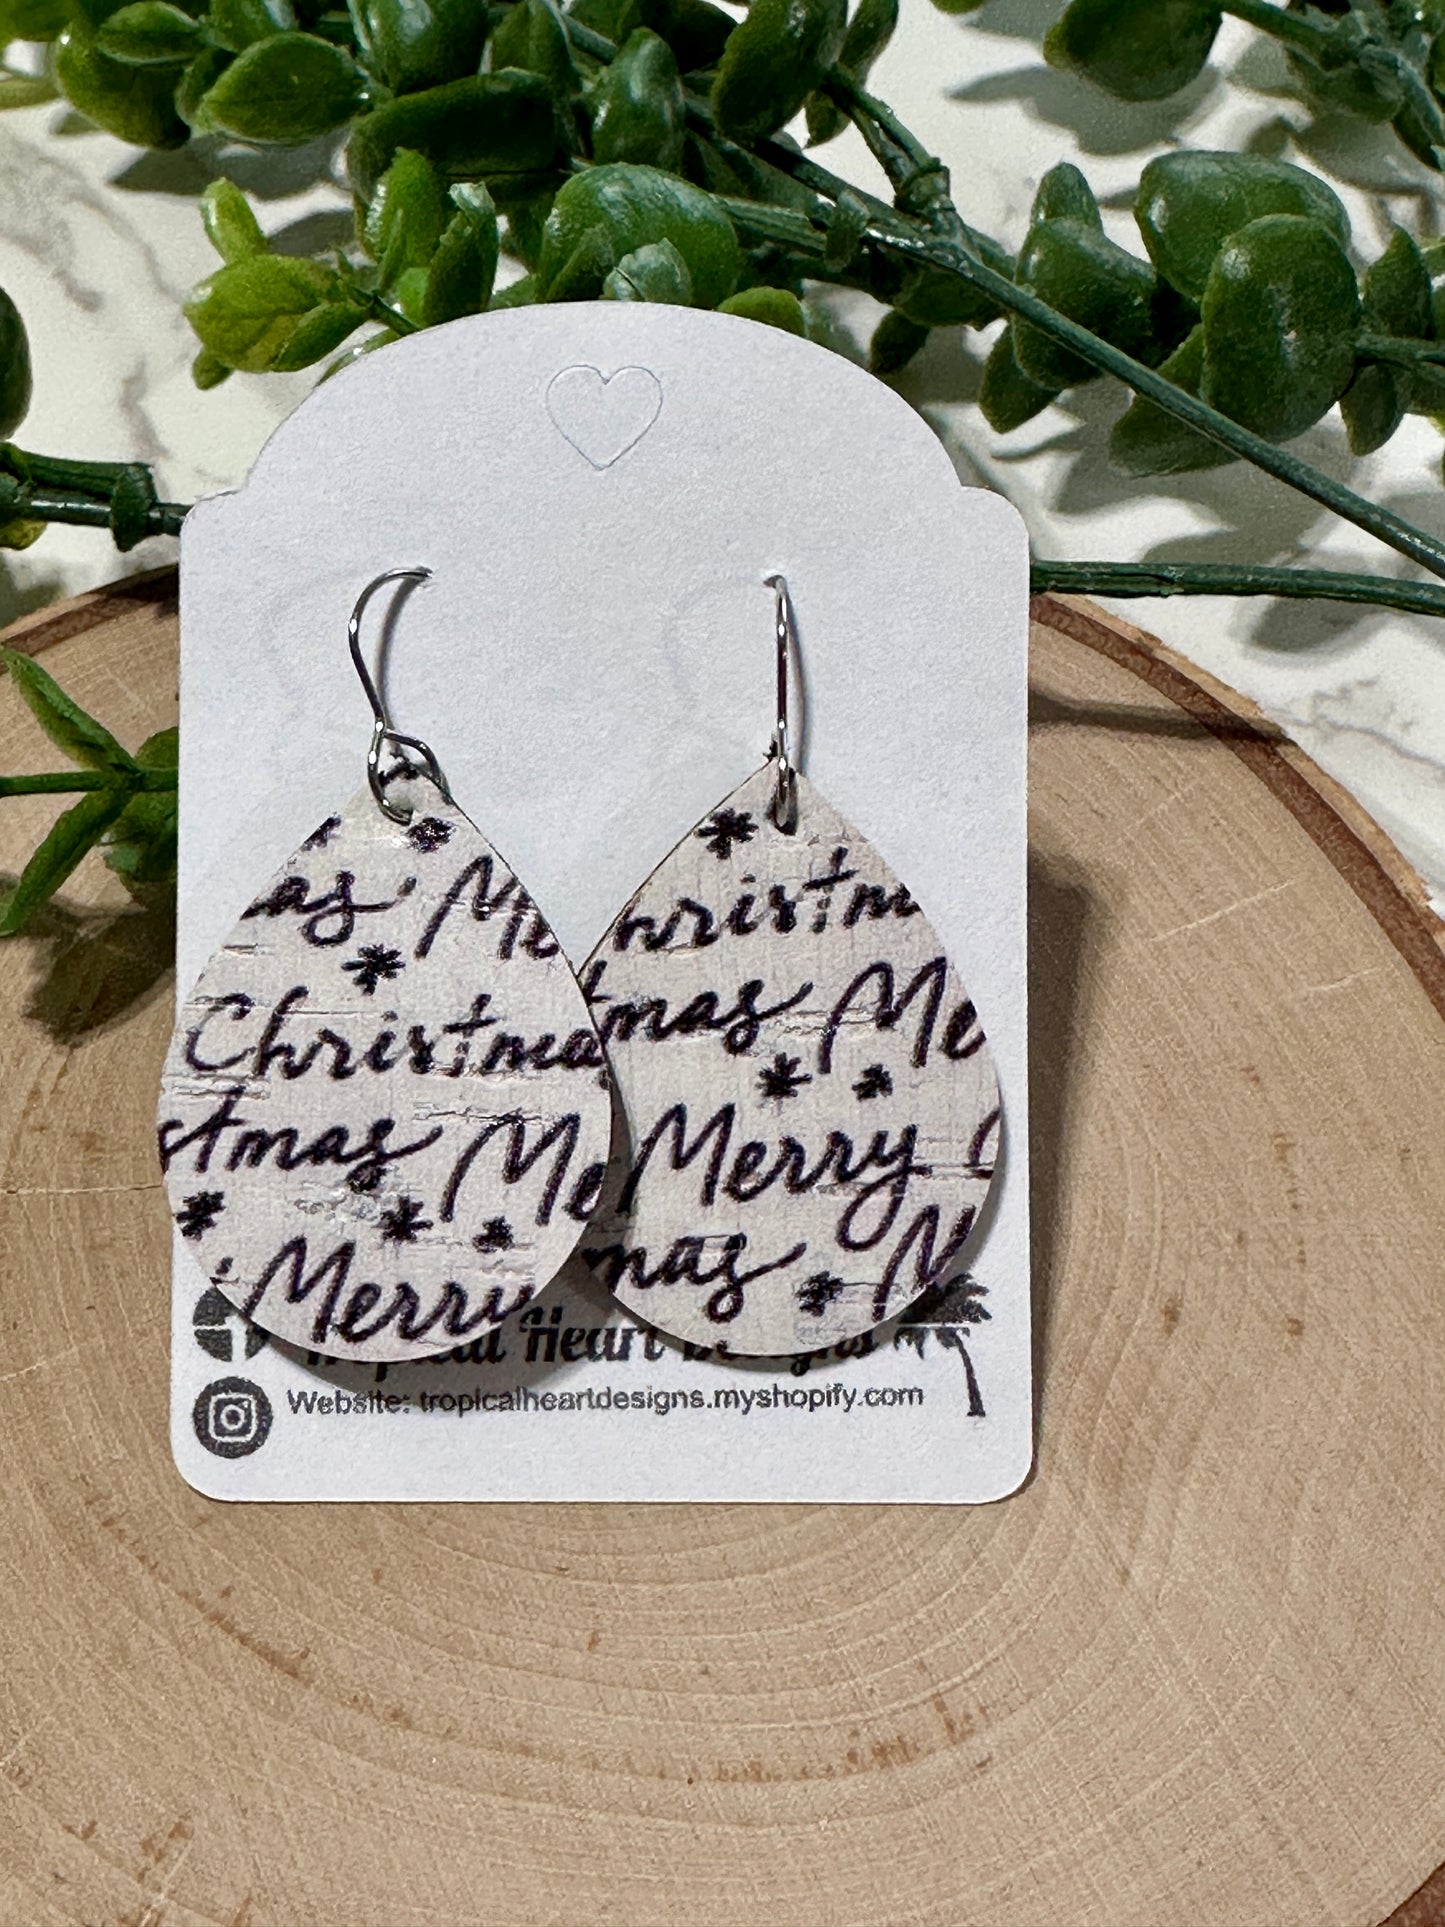 as Me
Christma
stmas Me
Merry
hristm
mas Me
Merry
mas
Tropical Heart Designs
Website: tropicalheartdesigns.myshopify.com